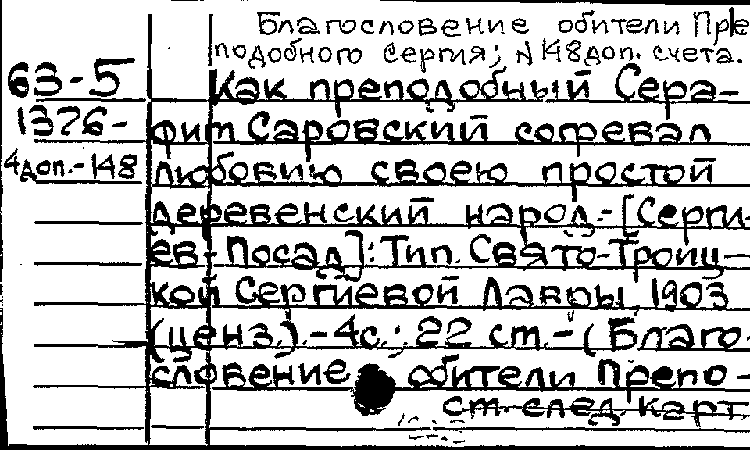 Благословение обители Пре
подобного Сергия; N 148 доп. счета.
63-5 Как преподобный Сера-
1376- фим Саровский согревал
4 доп.-148 любовию своею простой
деревенский народ.-[Серги-
ев-Посад]: Тип. Свято-Троиц-
кой Сергиевой Лавры, 1903
(ценз.).-4с.; 22 см.-(Благо-
словение обители Препо-
см. след. карт